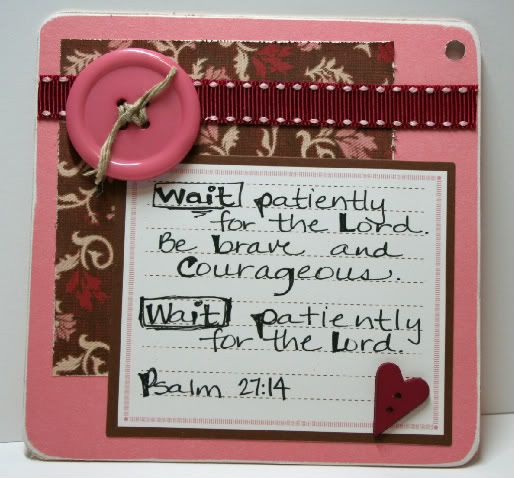 Wait patiently
for the Lord.
Be brave and
Courageous.
Wait patiently
for the Lord.
Psalm 27:14